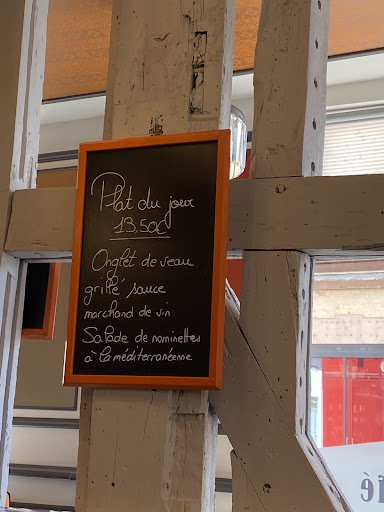 Plat du jour
13,50€
Onglet de veau
grillé sauce
marchand de vin
Salade de nominettes
à la méditerranéenne